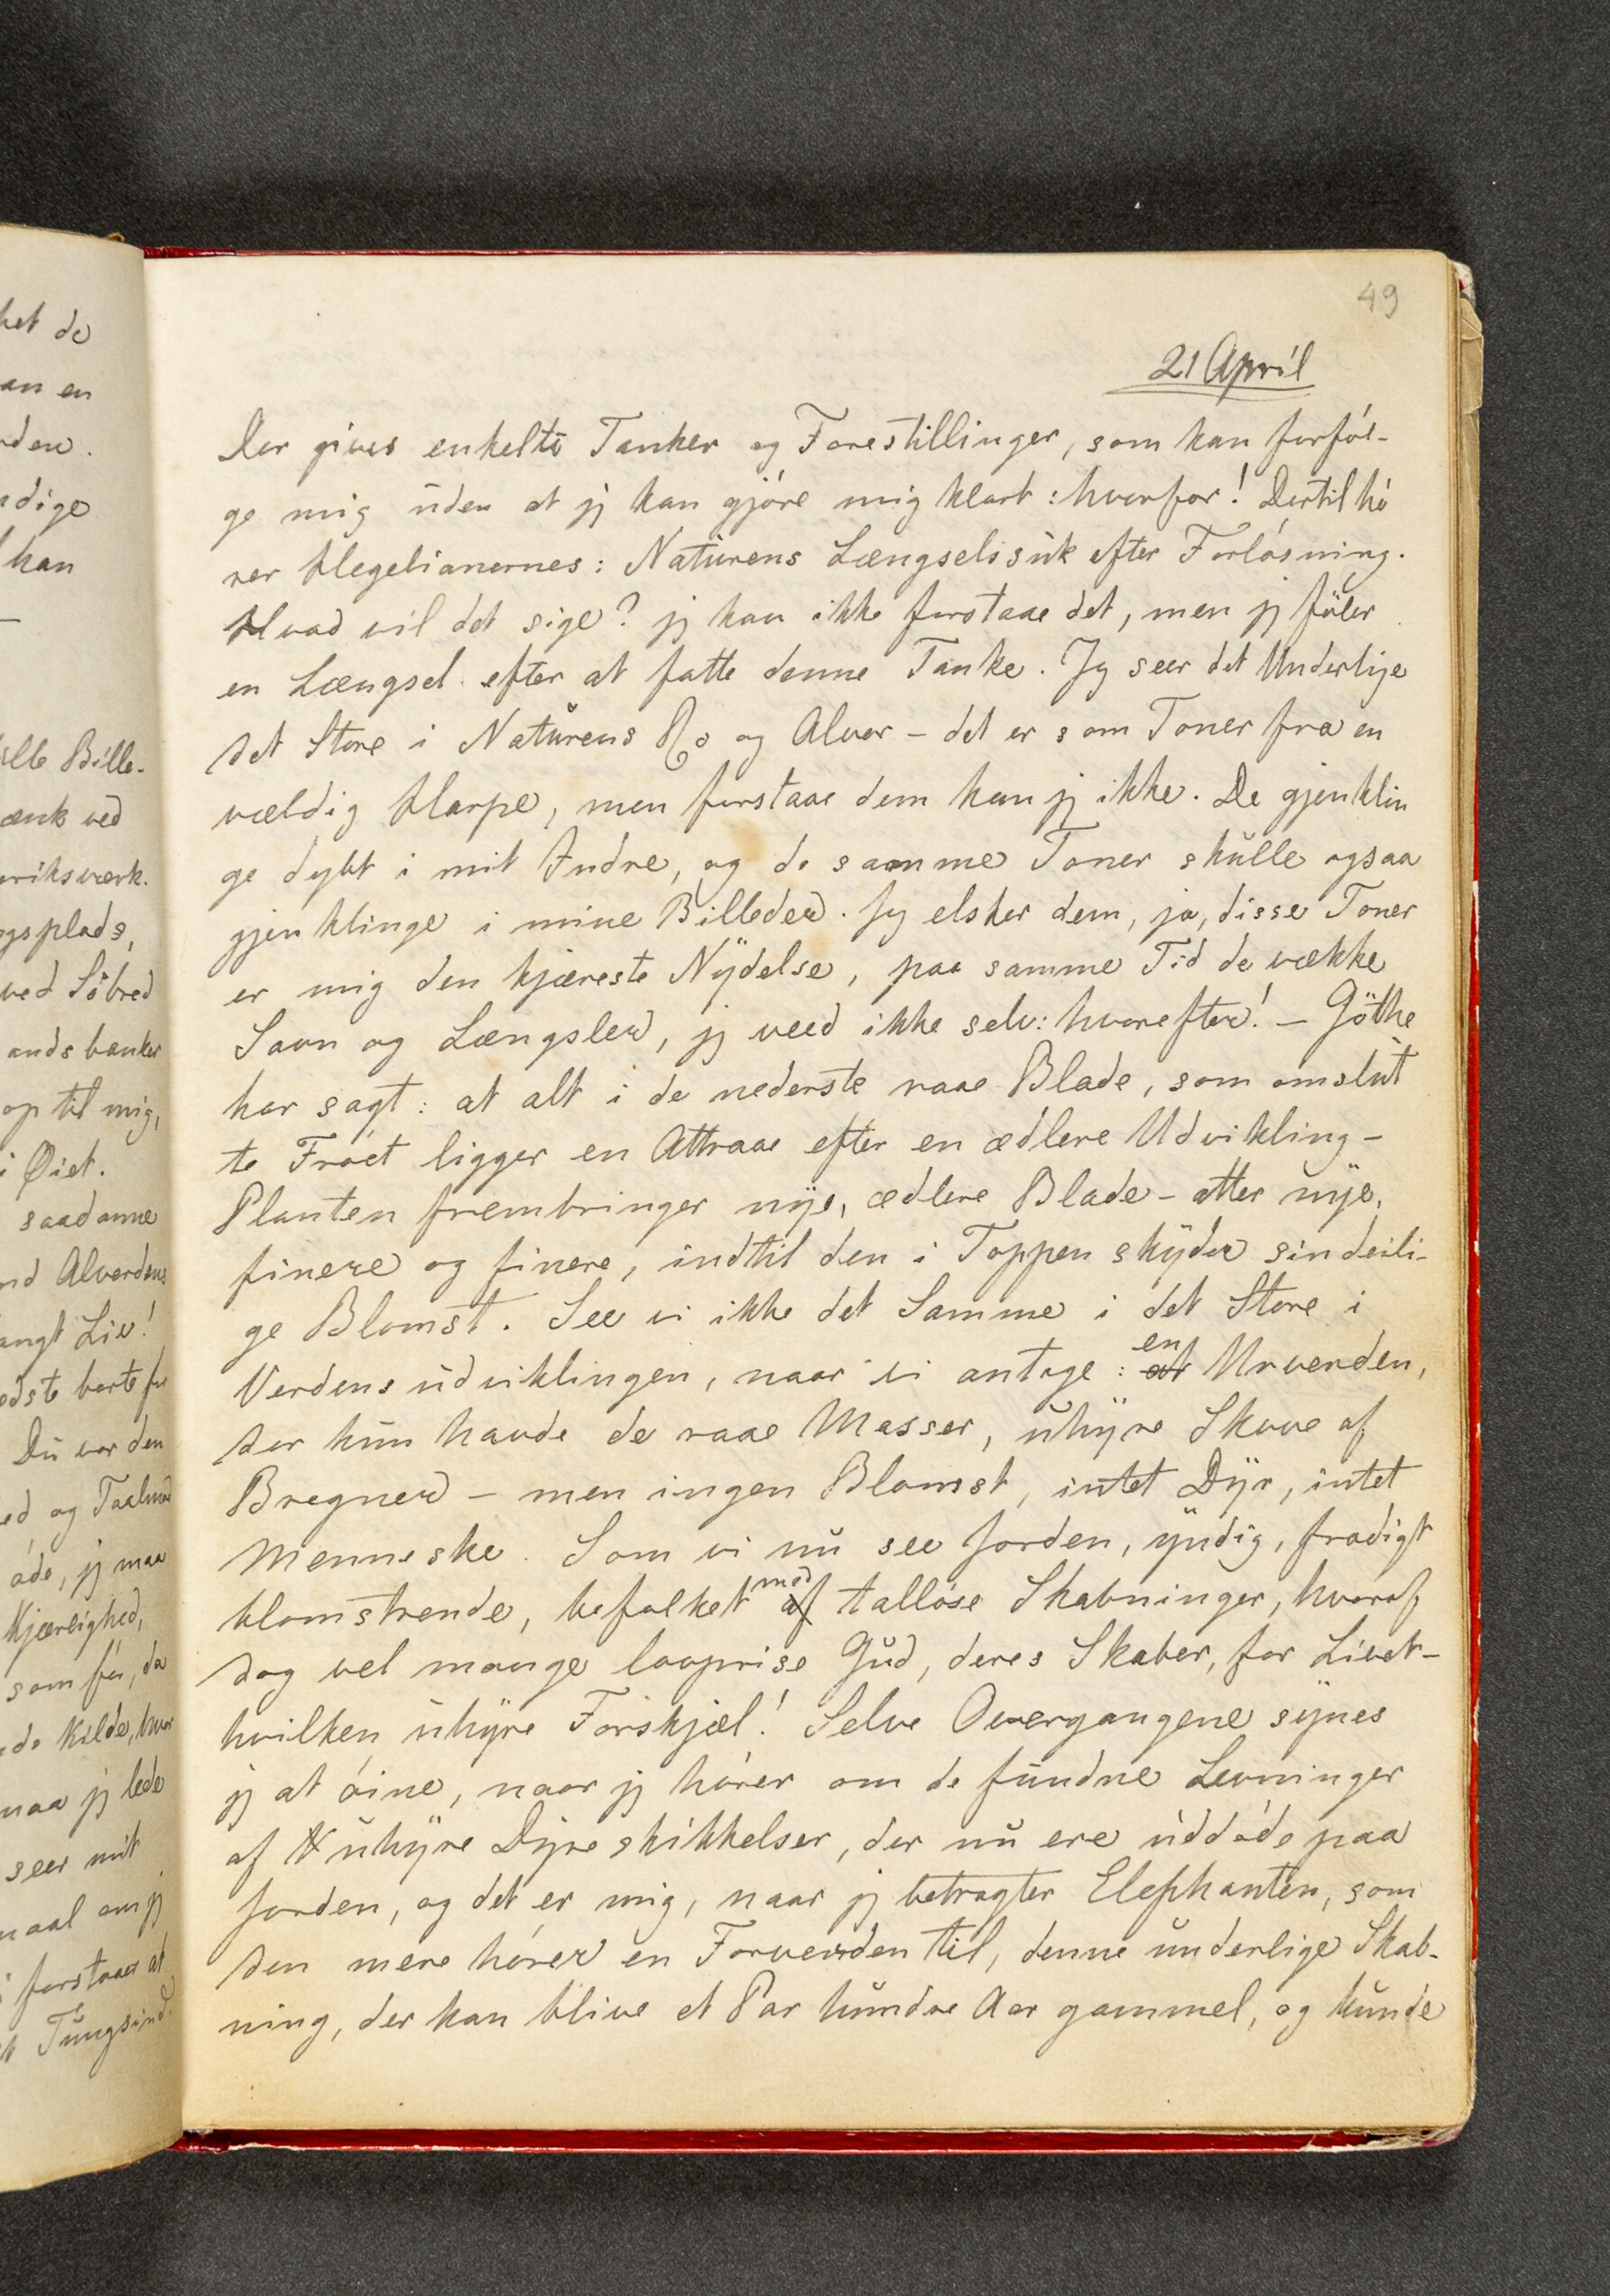 49
21 April
Der gives enkelte Tanker og Forestillinger, som kan forføl-
ge mig uden at jeg kan gjøre mig klart: hvorfor! Dertil hø
rer Hegelianernes: Naturens Længselssuk efter Forløsning.
Hvad vil det sige? jeg kan ikke forstaae det, men jeg føler
en Længsel efter at fatte denne Tanke. Jeg seer det Underlige
det Store i Naturens Ro og Alvor – det er som Toner fra en
vældig Harpe, men forstaae dem kan jeg ikke. De gjenklin
ge dybt i mit Indre, og de samme Toner skulle ogsaa
gjenklinge i mine Billeder. Jeg elsker dem, ja, disse Toner
er mig den kjæreste Nydelse, paa samme Tid de vække
Savn og Længsler, jeg veed ikke selv: hvorefter! – Göthe
har sagt: at alt i de nederste raae Blade, som omslut
te Frøet ligger en Attraae efter en ædlere Udvikling –
Planten frembringer nye, ædlere Blade – atter nye,
finere og finere, indtil den i Toppen skyder sin deili-
ge Blomst. See vi ikke det Samme i det Store i
Verdensudviklingen, naar vi antage: at en Urverden,
der kun havde de raae Masser, uhyre Skove af
Bregner – men ingen Blomst, intet Dyr, intet
Menneske. Som vi nu see Jorden, yndig, frodigt
blomstrende, befolket af med talløse Skabninger, hvoraf
dog vel mange lovprise Gud, deres Skaber, for Livet –
hvilken uhyre Forskjæl! Selve Overgangene synes
jeg at øine, naar jeg hører om de fundne Levninger
af uhyre Dyreskikkelser, der nu ere uddøde paa
Jorden, og det er mig, naar jeg betragter Elephanten, som
den mere hører en Forverden til, denne underlige Skab-
ning, der kan blive et Par hundre Aar gammel, og kunde
het de
an en
rden.
adige
kan
Bille-
ænk ved
eriksværk.
gsplads,
ved Söbred
ands banker
op til mig,
i Øiet.
saadanne
nd Alverdens
angt Liv!
edste borte for
Du var den
ed og Taalmod
øde, jeg maa
Kjærlighed,
som før, da
de Kilde, hvor
maa jeg lede
seer mit
maal om jeg
forstaaer at
Tungsind.